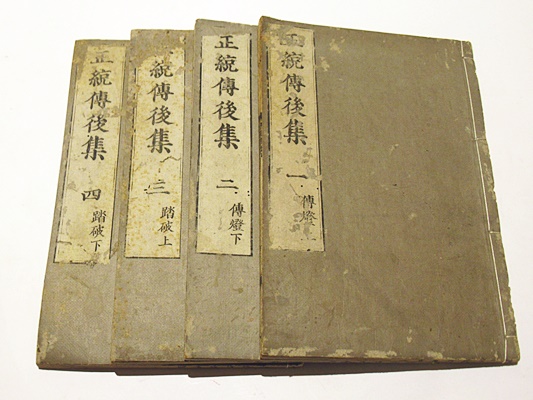 正統傳後集 一 傳燈
正統傳後集 二 傳燈下
統傳後集 三 踏破上
正統傳後集 四 踏破下